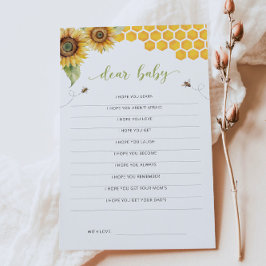 dear baby
I HOPE YOU LEARN
I HOPE YOU AREN'T AFRAID
I HOPE YOU LOVE
I HOPE YOU GET
I HOPE YOU LAUGH
I HOPE YOU BECOME
I HOPE YOU ALWAYS
I HOPE YOU REMEMBER
I HOPE YOU GET YOUR MOM'S
I HOPE YOU GET YOUR DAD'S
WITH LOVE